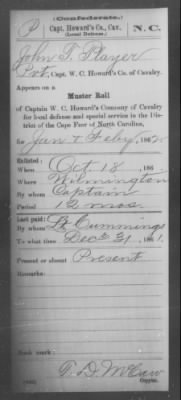 (Confederate.)
P Capt. Howard's Co., Cav., N. C.
(Local Defense.)
John T. Player
Pvt, Capt. W. C. Howard's Co. of Cavalry.
Appears on a
Muster Roll
of Captain W. C. Howard's Company of Cavalry
for local defense and special service in the Dis-
trict of the Cape Fear of North Carolina,
for Jan & Feby, 1862.
Enlisted:
When Oct. 18, 186
Where Wilmington
By whom Captain
Period 12 mos.
Last paid:
By whom Lt. Cummings
To what time Dec 31, 1861.
Present or absent Present
Remarks:
Book mark:
T. D. McCaw
Copyist.